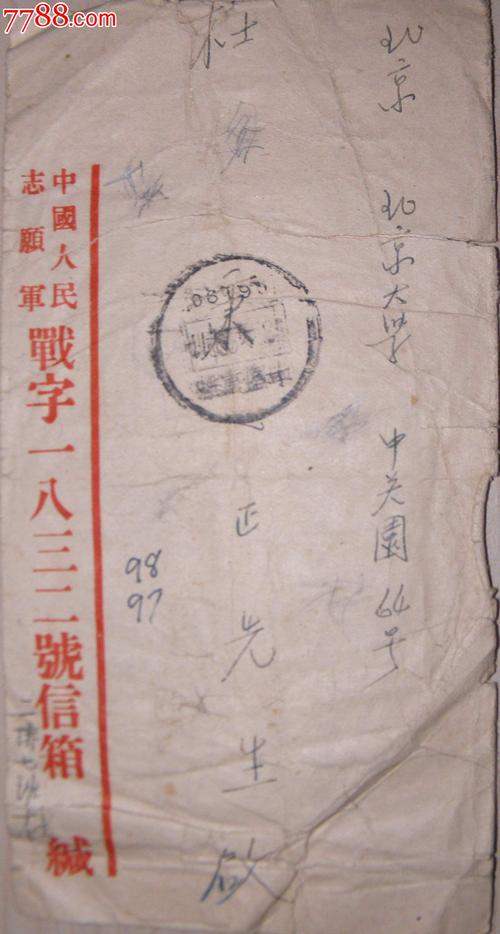 7788.com
北京 北京大学 中关園64号
杜 正先生啟
98
97
中國人民
志願軍
戰字一八三二號信箱 緘